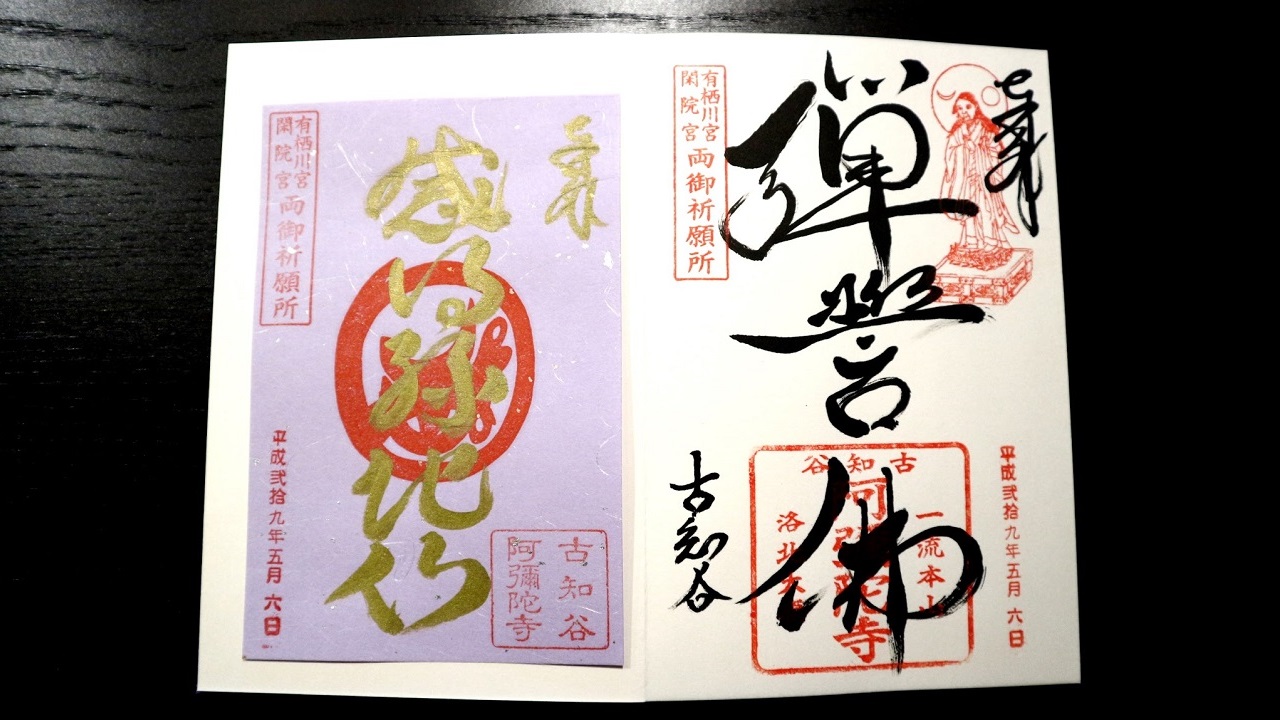 奉拝
平成弐拾九年五月六日
彈誓佛
古知谷
一流本山
阿彌陀寺
有栖川宮
閑院宮
両御祈願所
古知谷
奉拝
古知谷
阿彌陀寺
有栖川宮
閑院宮
両御祈願所
平成弐拾九年五月六日